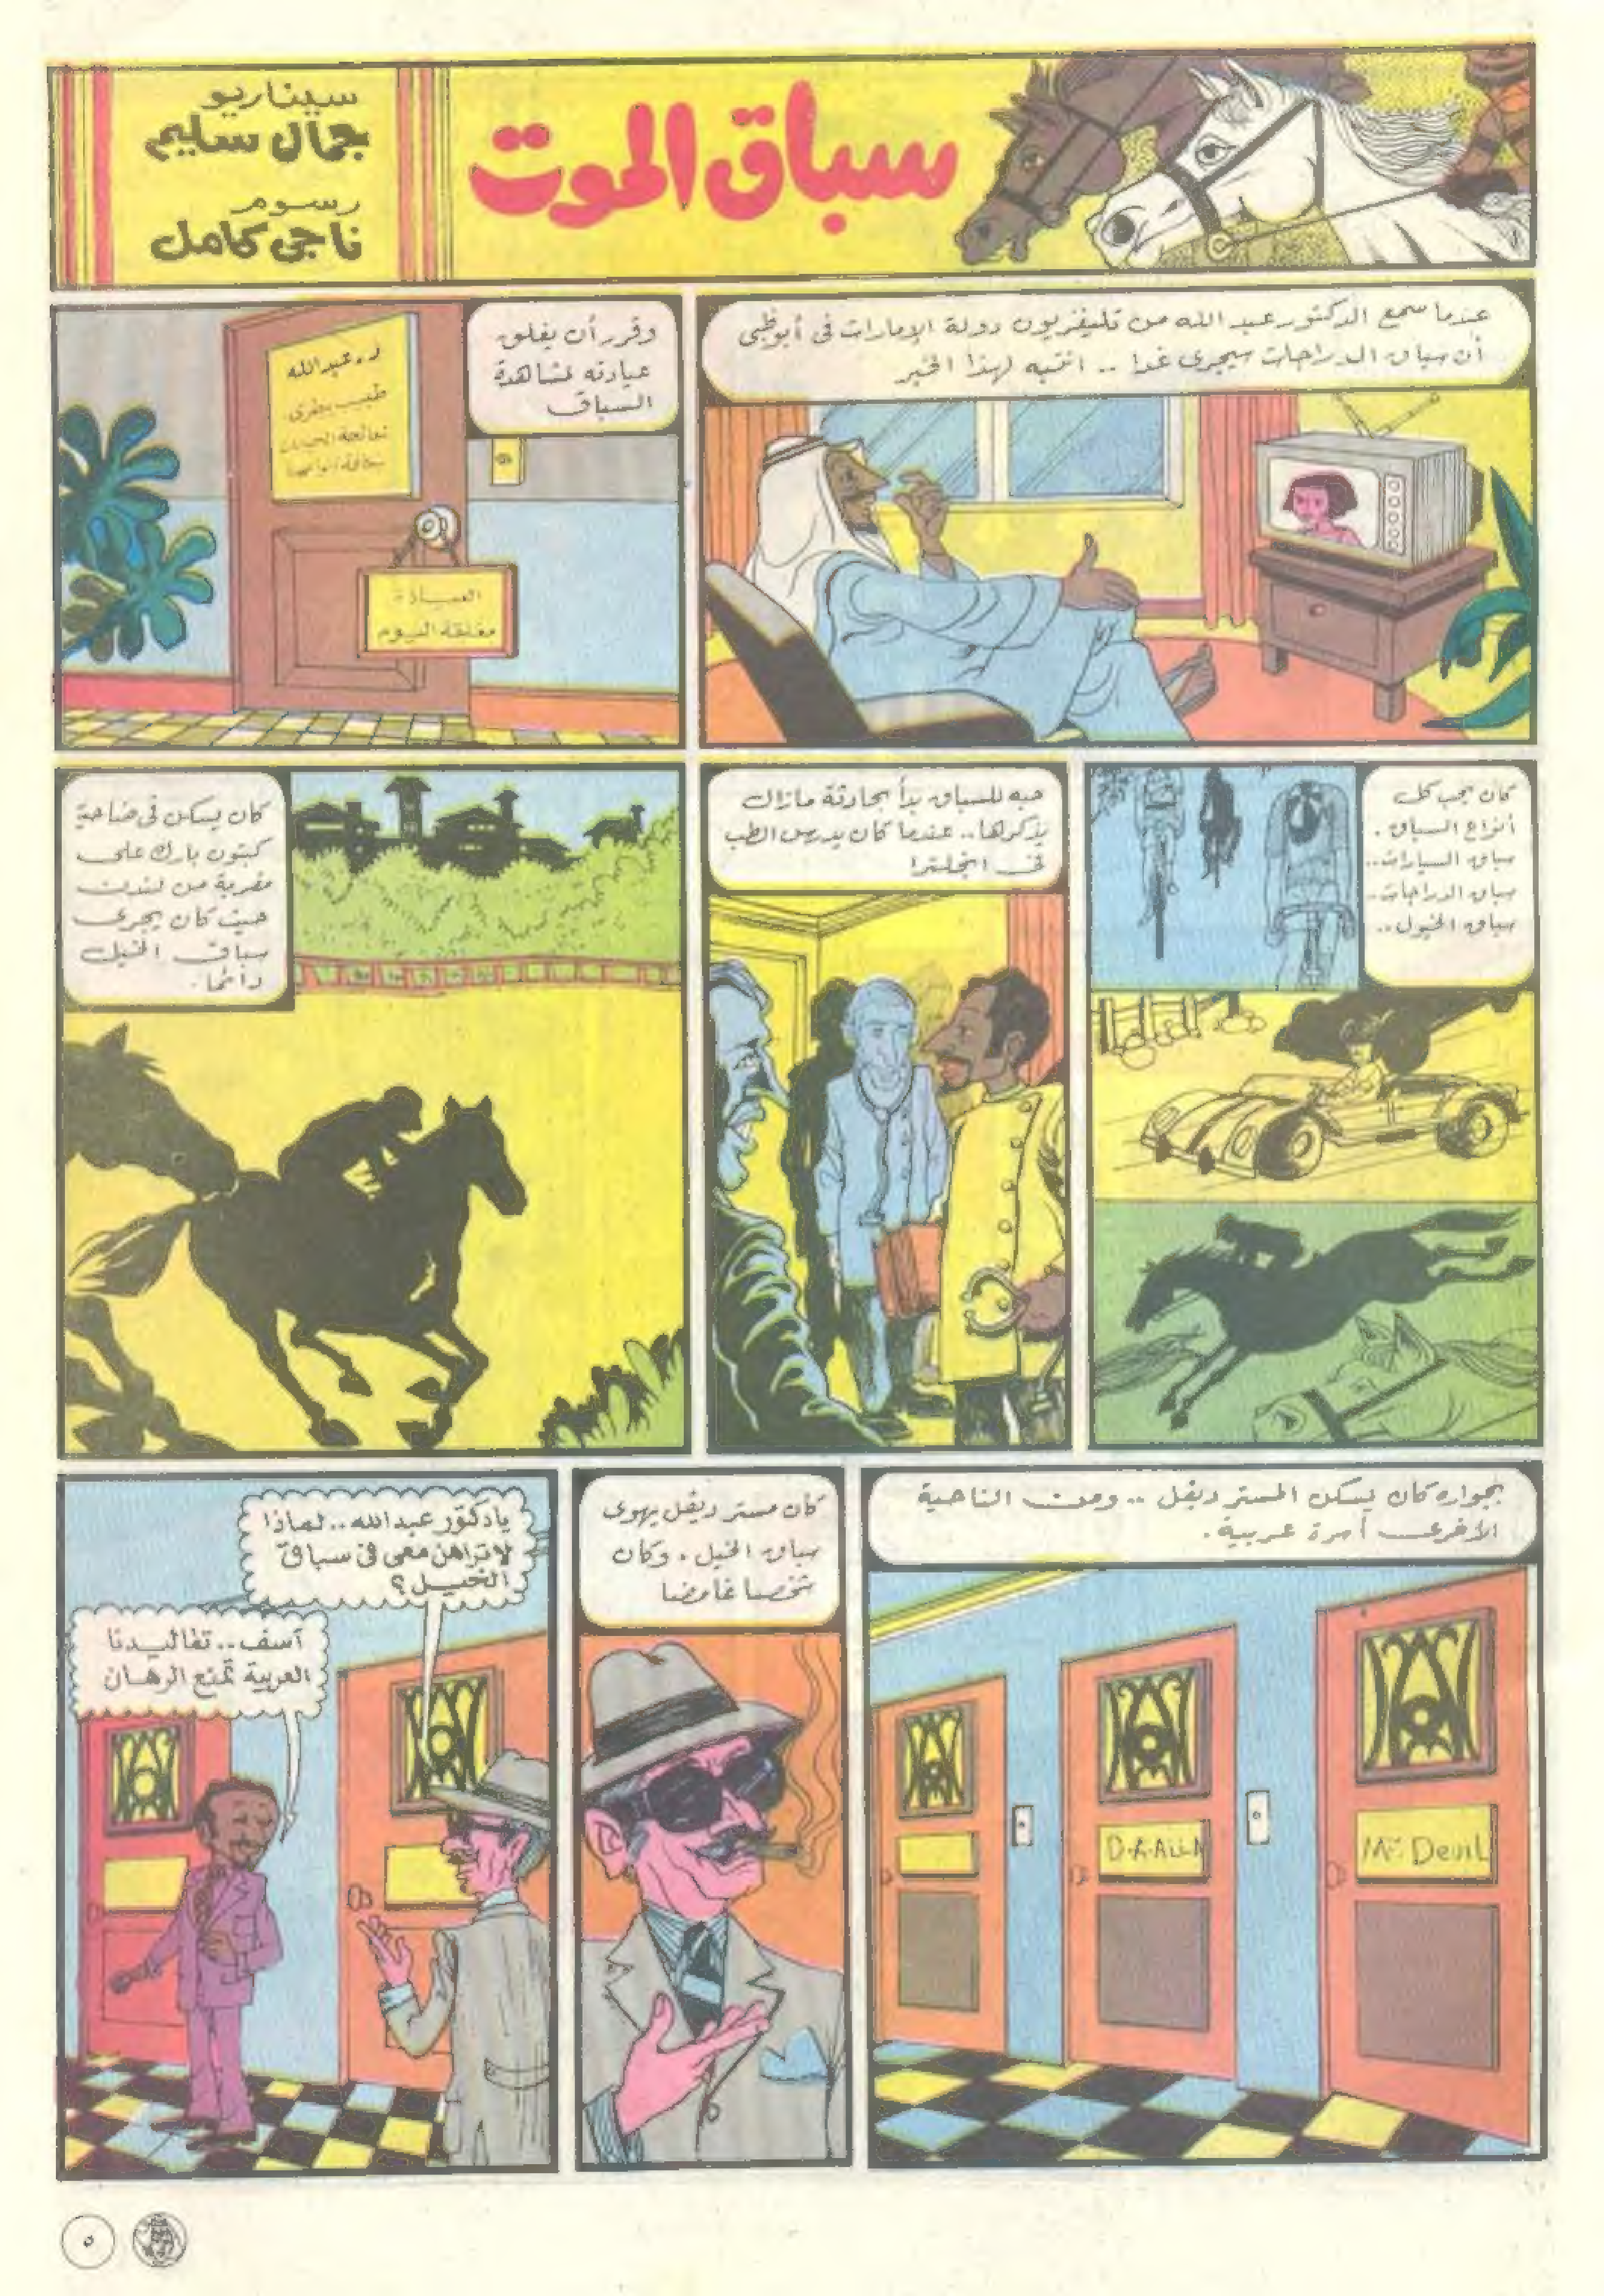 سباق الموت
سيناريو
جمال سليم
رسوم
ناجى كامل
عندما سمع الدكتور عبد الله من تليفزيون دولة الإمارات فى أبوظبى
أن سباق الدراجات سيجرى غدا .. انتبه لهذا الخبر
وقرر أن يغلق
عيادته لمشاهدة
السباق
د. عبدالله
طبيب بيطرى
العيادة
مغلقة اليوم
كان يحب كل
أنواع السباق .
سباق السيارات..
سباق الدراجات..
سباق الخيول ..
حبه للسباق بدأ بحادثة مازال
يذكرها.. عندما كان يدرس الطب
فى انجلترا
كان يسكن فى ضاحية
كبتون بارك على
مقربة من لندن
حيث كان يجرى
سباق الخيل
دائما .
بجواره كان يسكن المستر ديفل .. ومن الناحية
الأخرى أسرة عربية .
Mr. Devil
D-A-ALLA
كان مستر ديفل يهوى
سباق الخيل . وكان
شخصا غامضا
يادكتور عبدالله .. لماذا
لا تراهن معى فى سباق
الخيل ؟
آسف .. تقاليدنا
العربية تمنع الرهان
٥